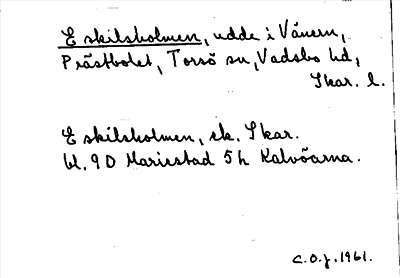 Eskilsholmen, udde i Vänern,
Prästbolet, Torsö sn, Vadsbo hd,
Skar. l.
Eskilsholmen, ek. Skar.
bl. 9D Mariestad 5h Kalvöarna.
C.O.J. 1961.